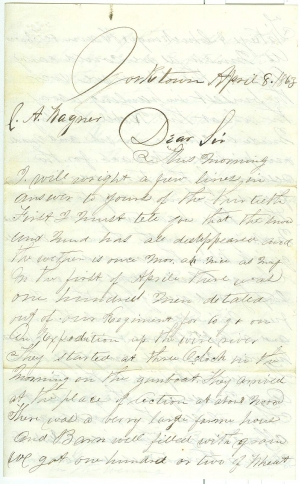 Yorktown April 8. 1863
C. A. Wagner
Dear Sir
This morning
I will wright a few lines in
answer to yours of the thirtieth
First I must tele you that the snow
and mud has all disappeard and
the wether is once more as nice as May
In the first of Aprile there was
one hundred men detaled
out of our Regiment for to go on
An Expedation up the river
They started at three Oclock in the
morning on the gunboat. They arived
at the place of election at about noon
There was a very large farme house
and Barn well filled with grain
we got one hundred or two of Wheat